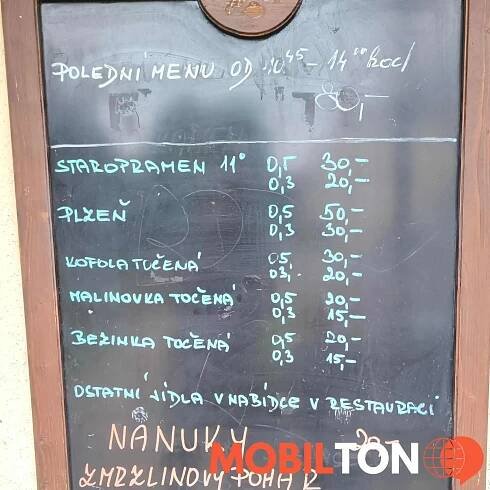 POLEDNÍ MENU OD 10⁴⁵ - 14⁰⁰ hod
80,-
STAROPRAMEN 11° 0,5 30,-
0,3 20,-
PLZEŇ 0,5 50,-
0,3 30,-
KOFOLA TOČENÁ 0,5 30,-
0,3 20,-
MALINOVKA TOČENÁ 0,5 20,-
0,3 15,-
BEZINKA TOČENÁ 0,5 20,-
0,3 15,-
OSTATNÍ JÍDLA V NABÍDCE V RESTAURACI
NANUKY
MOBILTON
ZMRZLINOVÝ POHÁR